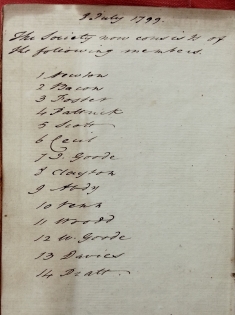 9 July 1799.
The Society now consists of
the following members.
1 Newton
2 Bacon
3 Foster
4 Pattrick
5 Scott
6 Cecil
7 J. Goode
8 Clayton
9 Abdy
10 Venn
11 Woodd
12 W. Goode
13 Davies
14 Pratt.